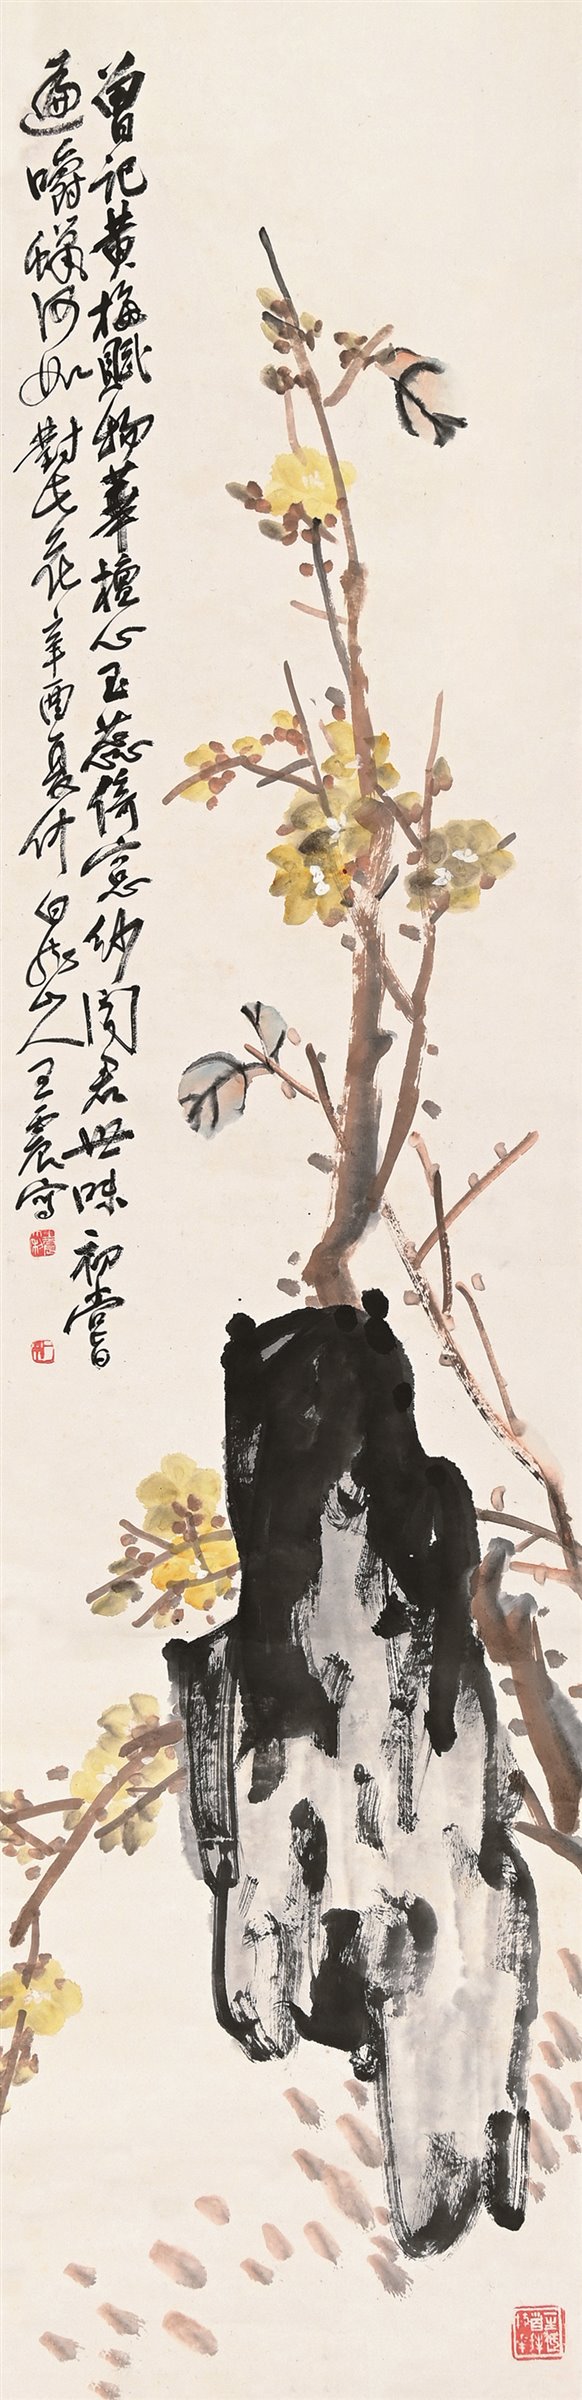 曾記黃梅賦物華檀心玉蕊倚窓紗聞君世味初嘗
遍嚼蠟何如對此花辛酉夏仲白龍山人王震寫